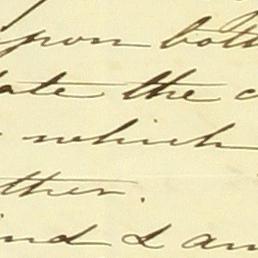 upon both
ate the c
which
ther.
ind & am